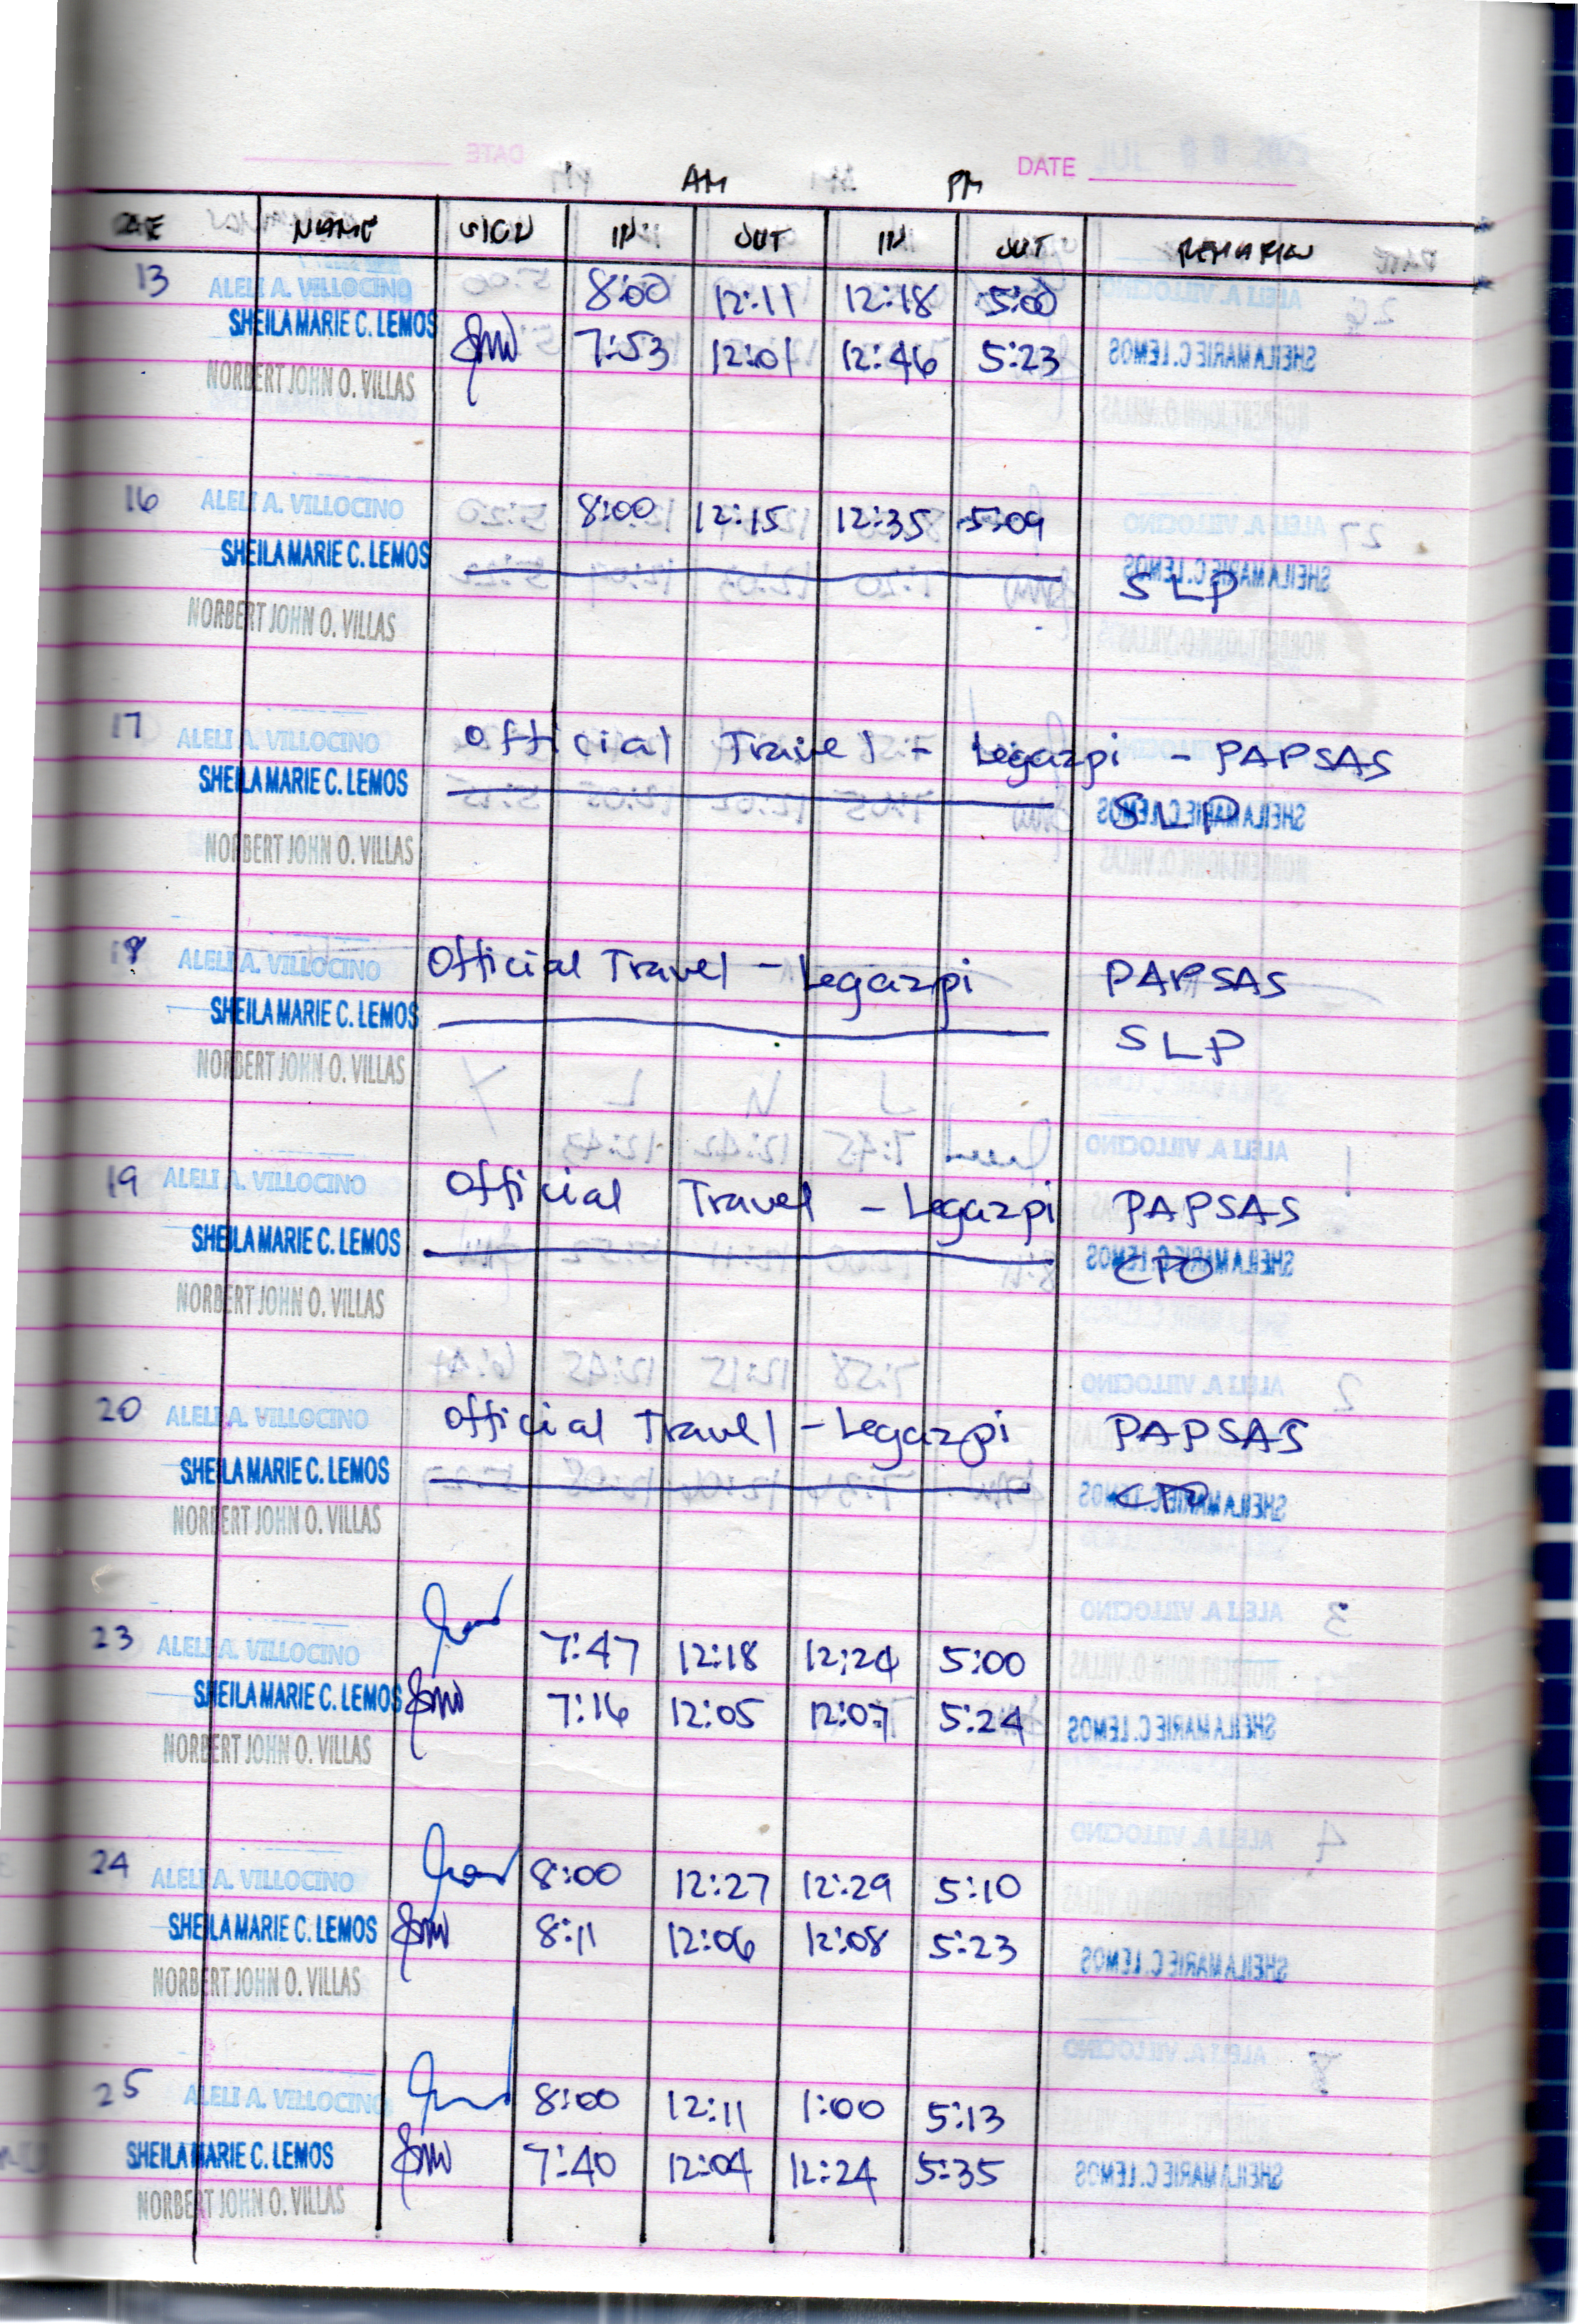 DATE
AM PM
DATE NAME SIGN IN OUT IN OUT REMARKS
13 ALELI A. VILLOCINO 8:00 12:11 12:18 5:00
SHEILA MARIE C. LEMOS 7:53 12:01 12:46 5:23
NORBERT JOHN O. VILLAS
16 ALELI A. VILLOCINO 8:00 12:15 12:35 5:09
SHEILA MARIE C. LEMOS SLP
NORBERT JOHN O. VILLAS
17 ALELI A. VILLOCINO Official Travel - Legazpi - PAPSAS
SHEILA MARIE C. LEMOS SLP
NORBERT JOHN O. VILLAS
18 ALELI A. VILLOCINO Official Travel - Legazpi PAPSAS
SHEILA MARIE C. LEMOS SLP
NORBERT JOHN O. VILLAS
19 ALELI A. VILLOCINO Official Travel - Legazpi PAPSAS
SHEILA MARIE C. LEMOS CTO
NORBERT JOHN O. VILLAS
20 ALELI A. VILLOCINO Official Travel - Legazpi PAPSAS
SHEILA MARIE C. LEMOS
NORBERT JOHN O. VILLAS
23 ALELI A. VILLOCINO 7:47 12:18 12:24 5:00
SHEILA MARIE C. LEMOS 7:16 12:05 12:07 5:24
NORBERT JOHN O. VILLAS
24 ALELI A. VILLOCINO 8:00 12:27 12:29 5:10
SHEILA MARIE C. LEMOS 8:11 12:06 12:08 5:23
NORBERT JOHN O. VILLAS
25 ALELI A. VILLOCINO 8:00 12:11 1:00 5:13
SHEILA MARIE C. LEMOS 7:40 12:04 12:24 5:35
NORBERT JOHN O. VILLAS